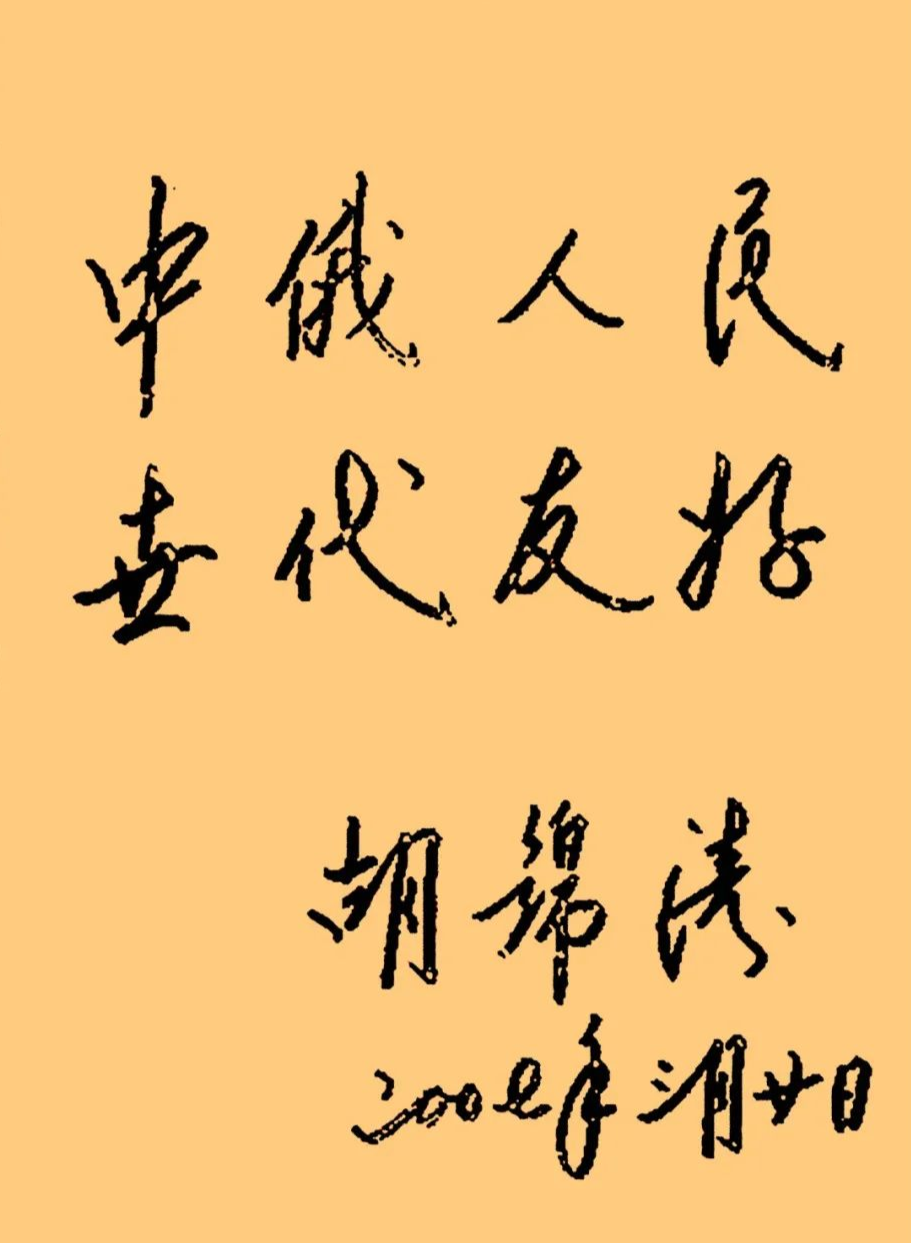 中俄人民
世代友好
胡锦涛
二〇〇七年三月廿日